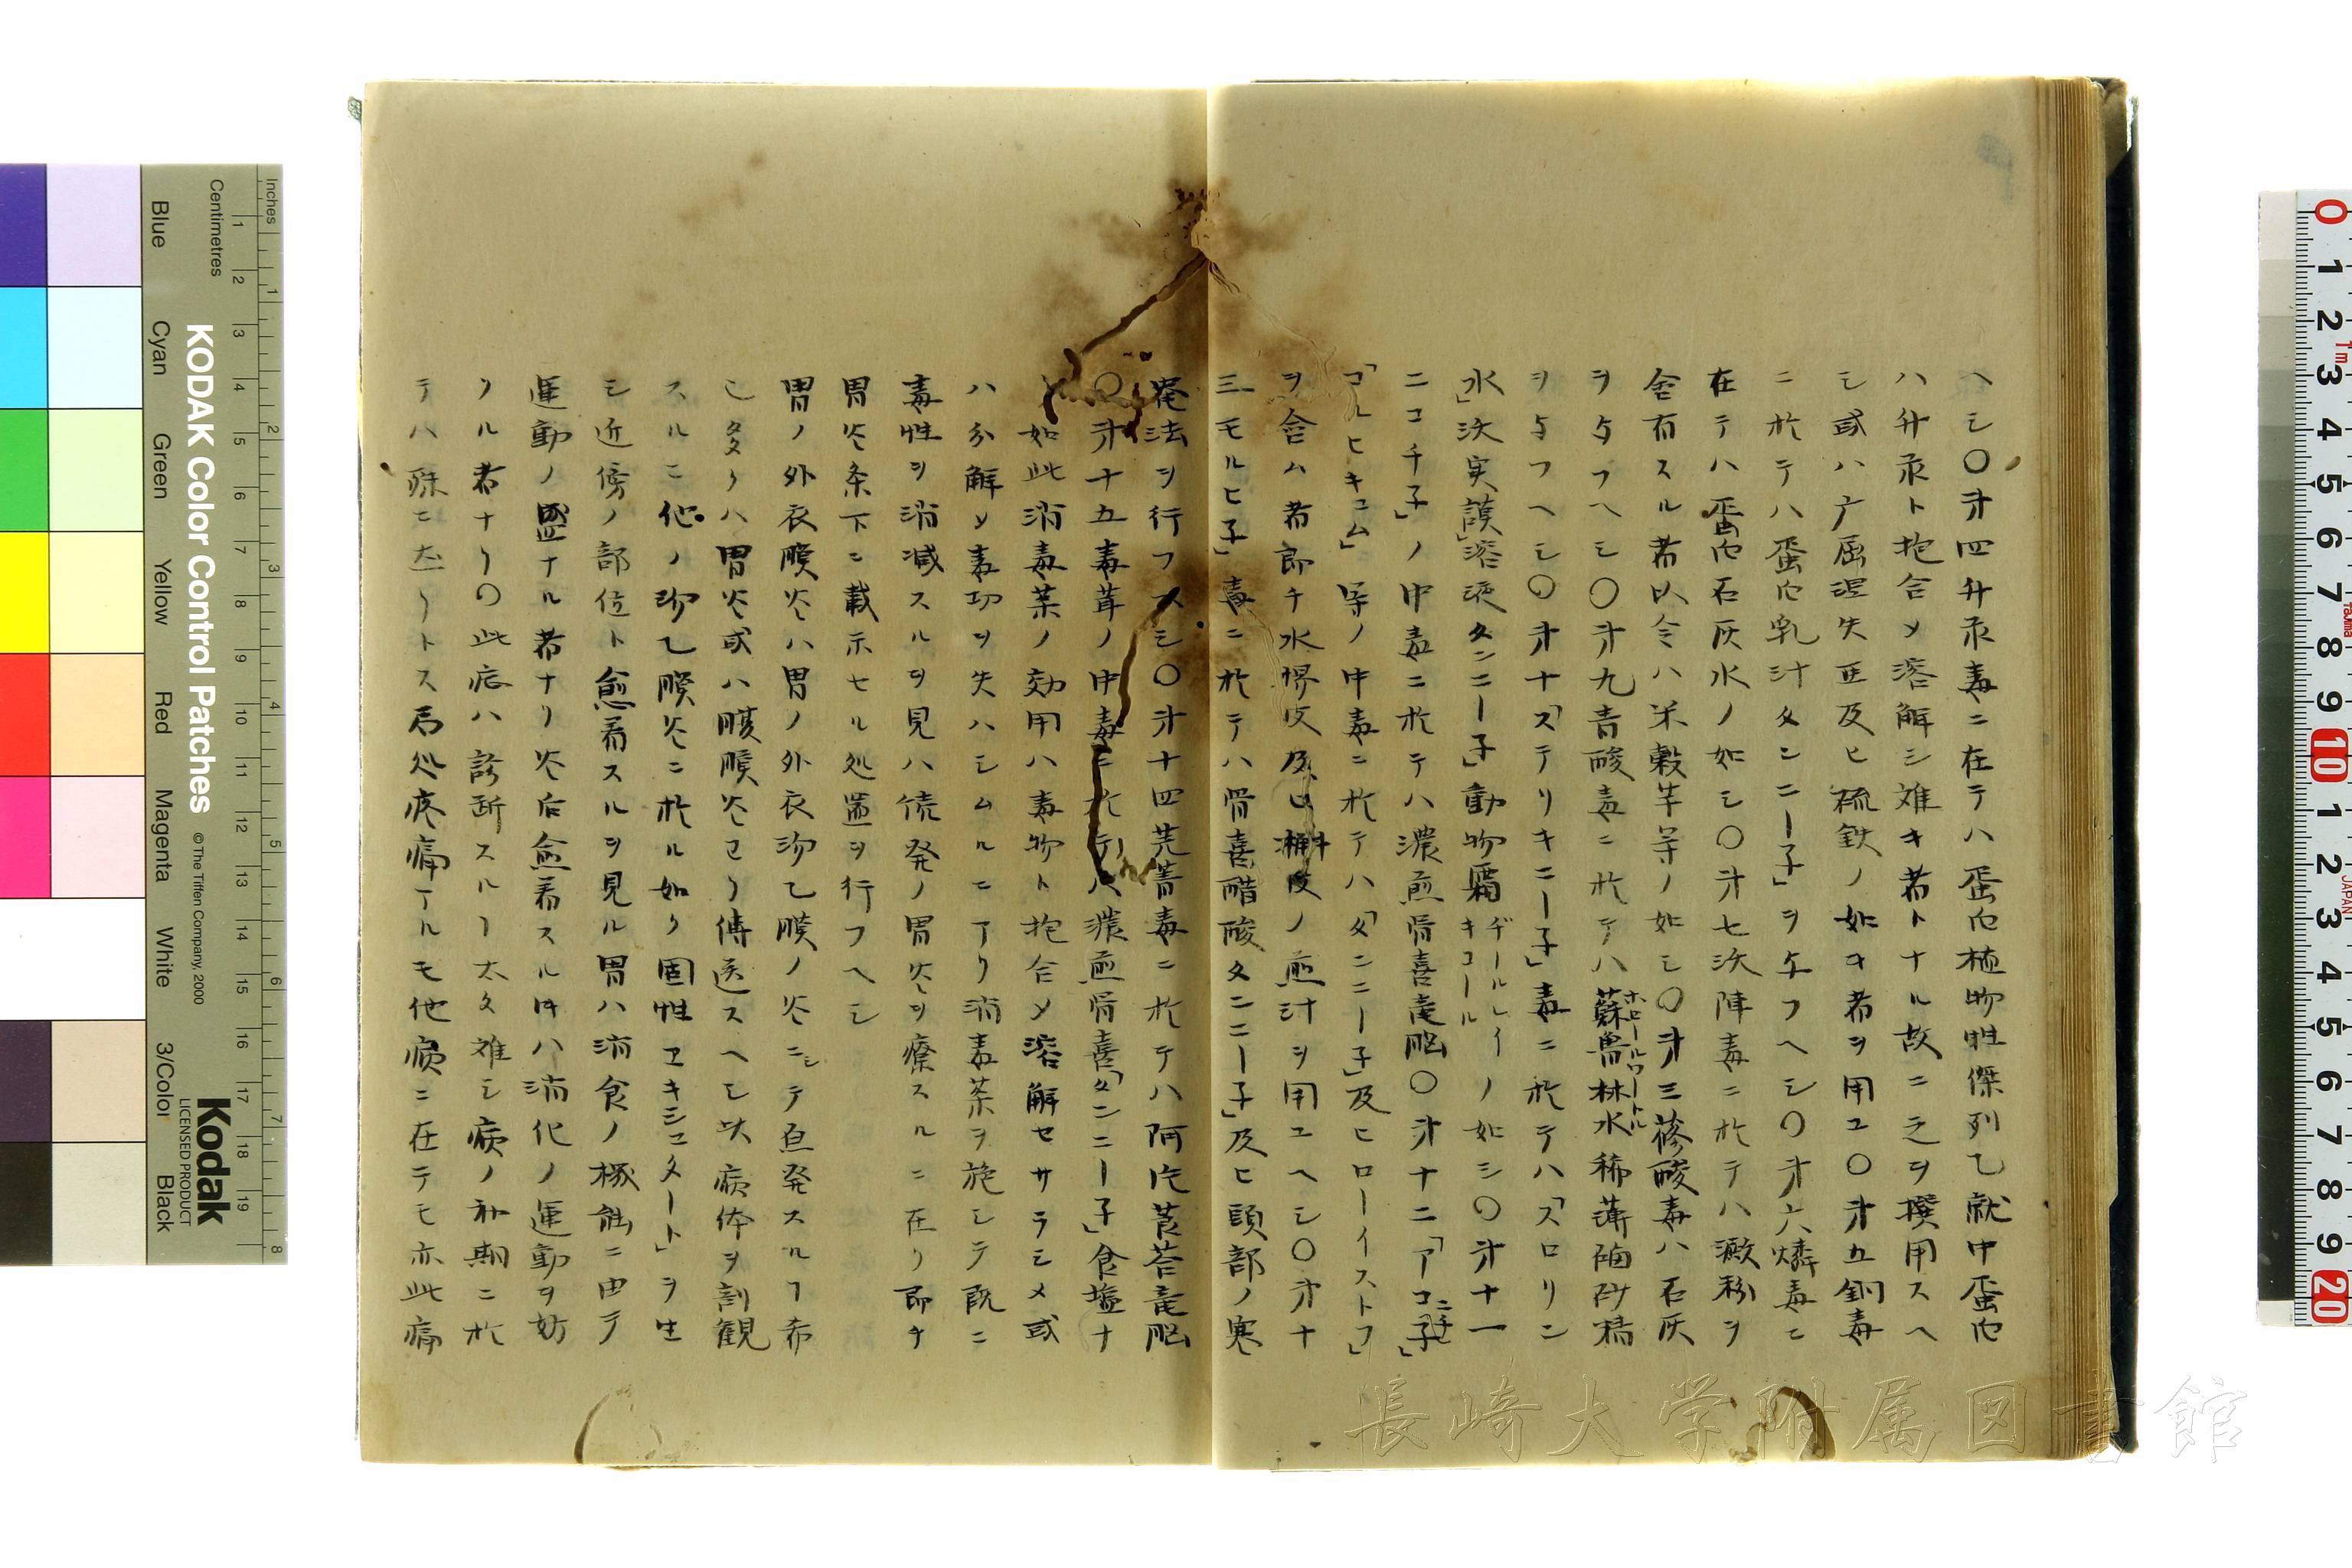 ヘシ〇才四升汞毒ニ在テハ蛋白植物性傑列乙就中蛋白
ハ升汞ト抱合メ溶解シ難キ者トナル故ニ之ヲ撰用スヘ
シ或ハ广屈涅失亜及ヒ硫鉄ノ如キ者ヲ用ユ〇才五銅毒
ニ於テハ蛋白乳汁タンニー子」ヲ与フヘシ〇才六燐毒ニ
在テハ蛋白石灰水ノ如シ〇才七沃陣毒ニ於テハ澱粉ヲ
含有スル者以令ハ米穀芋等ノ如シ〇才三蓚酸毒ハ石灰
ヲ与フヘシ〇才九青酸毒ニ於テハ蘇魯林水稀薄硇砂精
ホロールワートル
ヲ与フヘシ〇才十「ステリキニー子」毒ニ於テハ「スロリン
水」沃実謨溶液タンニー子」動物霜ノ如シ〇才十一
ヂールレイ
キコール
ニコチ子」ノ中毒ニ於テハ濃煎骨喜竜脳〇才十二「アコ子」
ニチ子
「コルヒキユム」等ノ中毒ニ於テハ「タンニー子」及ヒローイストフ」
ヲ含ム者即チ水楊皮及ヒ槲皮ノ煎汁ヲ用ユヘシ〇才十
三モルヒ子」毒ニ於テハ骨喜醋酸タンニー子」及ヒ頭部ノ寒
罨法ヲ行フヘシ〇才十四芫菁毒ニ於テハ阿片莨菪竜脳
〇才十五毒茸ノ中毒ニ於テハ濃煎骨喜「タンニー子」食塩ナ
如此消毒薬ノ効用ハ毒物ト抱合メ溶解セサラシメ或
ハ分解メ毒功ヲ失ハシムルニアリ消毒薬ヲ施シテ既ニ
毒性ヲ消滅スルヲ見ハ続発ノ胃炎ヲ療スルニ在リ即チ
胃炎条下ニ載示セル処置ヲ行フヘシ
胃ノ外衣膜炎ハ胃ノ外衣沕乙膜ノ炎ニシテ亟発スルフ希
ヒ多クハ胃炎或ハ腹膜炎ヨリ傳送スヘシ此病体ヲ剖観
スルニ他ノ沕乙膜炎ニ於ル如ク固性ヱキシユタート」ヲ生
シ近傍ノ部位ト愈着スルヲ見ル胃ハ消食ノ機能ニ由テ
運動ノ盛ナル者ナリ炎后愈着スル件ハ消化ノ運動ヲ妨
クル者ナリ〇此症ハ診断スルー太タ難シ病ノ初期ニ於
テハ殊ニ然リトス局処疼痛アルモ他病ニ在テモ亦此痛